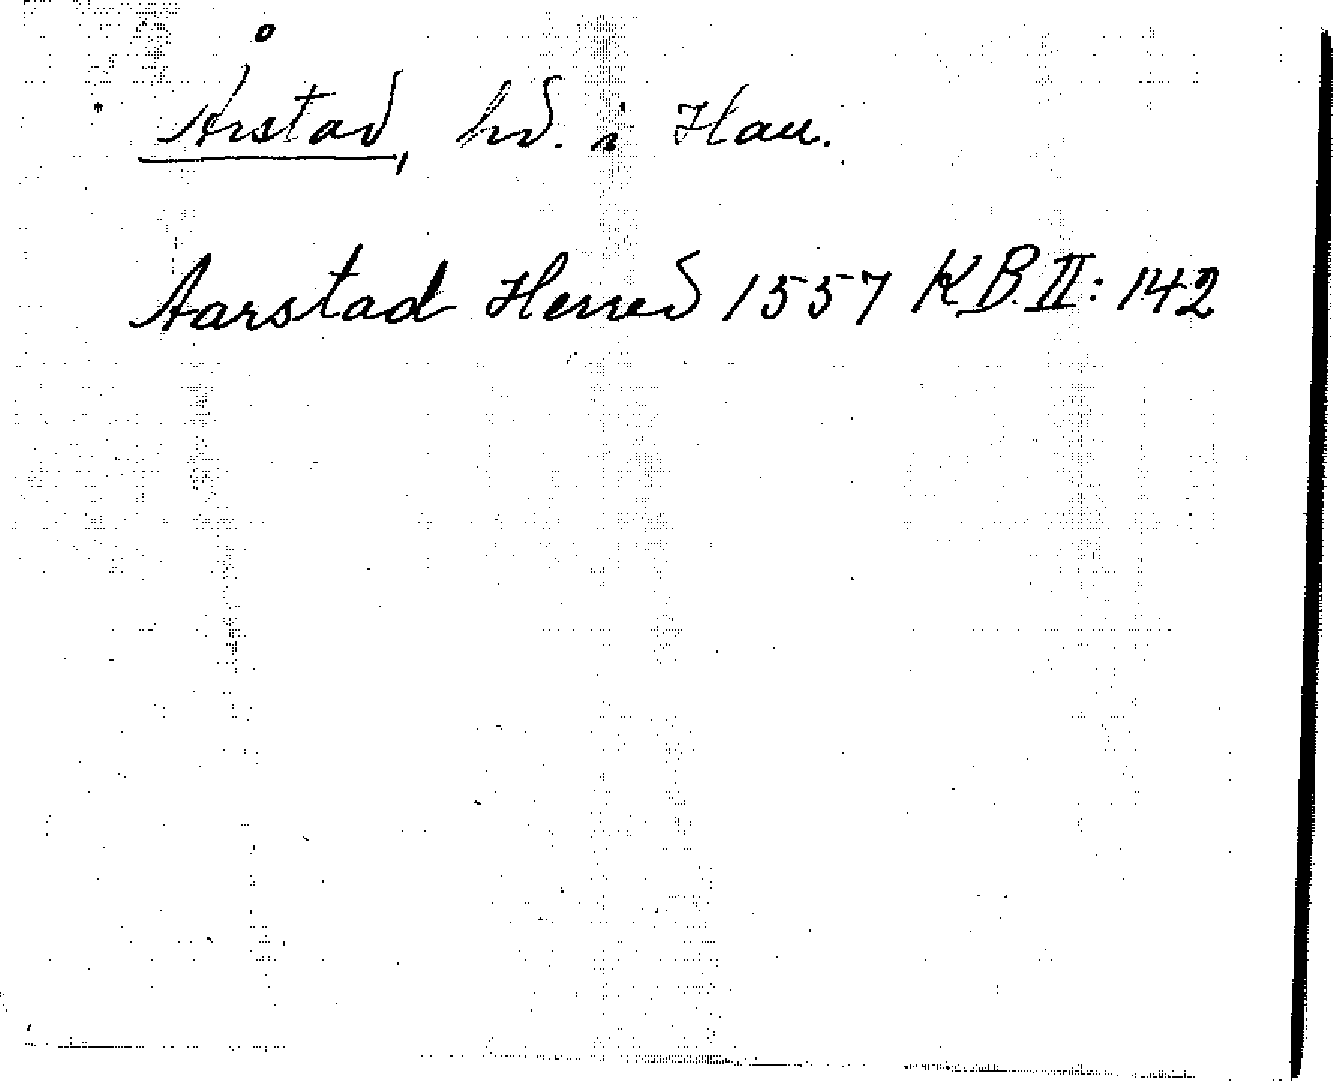 Årstad, hd. i Hall.
Aarstad Herred 1557 KB.II: 142